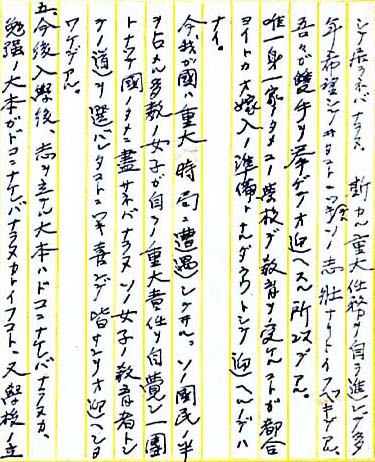 シテ居ラネバナラヌ、斯カル重大任務ヲ自ラ進ンデ多
年希望シテ井タコトハ誠ニソノ志壮ナリトイフベキデアル。
吾々ガ雙手ヲ挙ゲテオ迎ヘスル所以デアル。
唯一身一家ノタメニ學校デ教育ヲ受ケルノガ都合
ヨイトカオ嫁入ノ準備トナルダラウトシテ迎ヘルノデハ
ナイ。
今我ガ國ハ重大ノ時局ニ遭遇シテ井ル。ソノ國民ノ半
ヲ占メル多数ノ女子ガ自ラノ重大責任ヲ自覺シ一團
トナッテ國ノタメニ盡サネバナラヌソノ女子ノ教育者トシ
テノ道ヲ選バレタコトニ対シ喜ンデ皆サンヲオ迎ヘシタ
ワケデアル。
五、今後入學後、志ヲ立テル大本ハドコニナケレバナラヌカ、
勉強ノ大本ガドコニナケレバナラヌカトイフコト、又學校ノ主